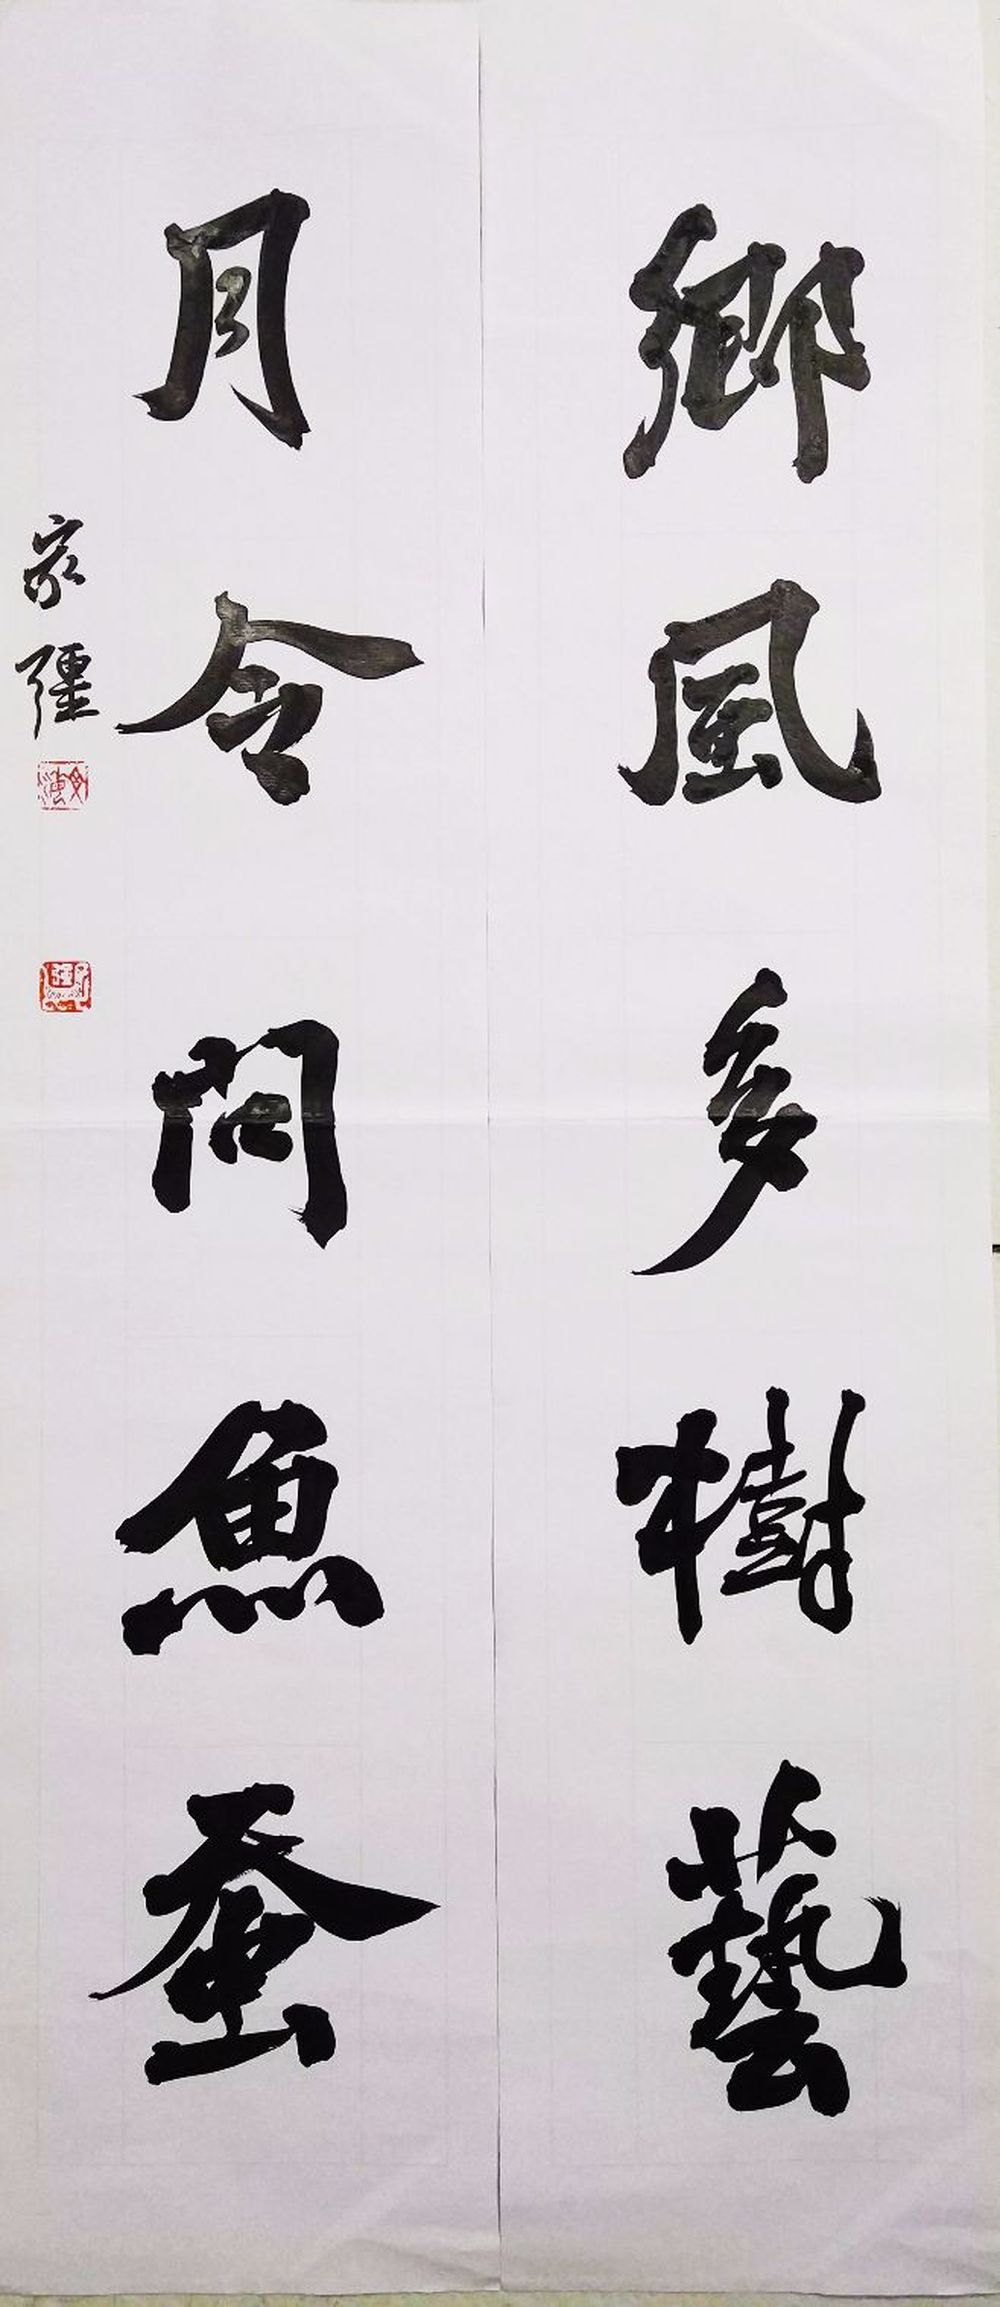 鄉風多樹藝
月令問魚蚕
家疆